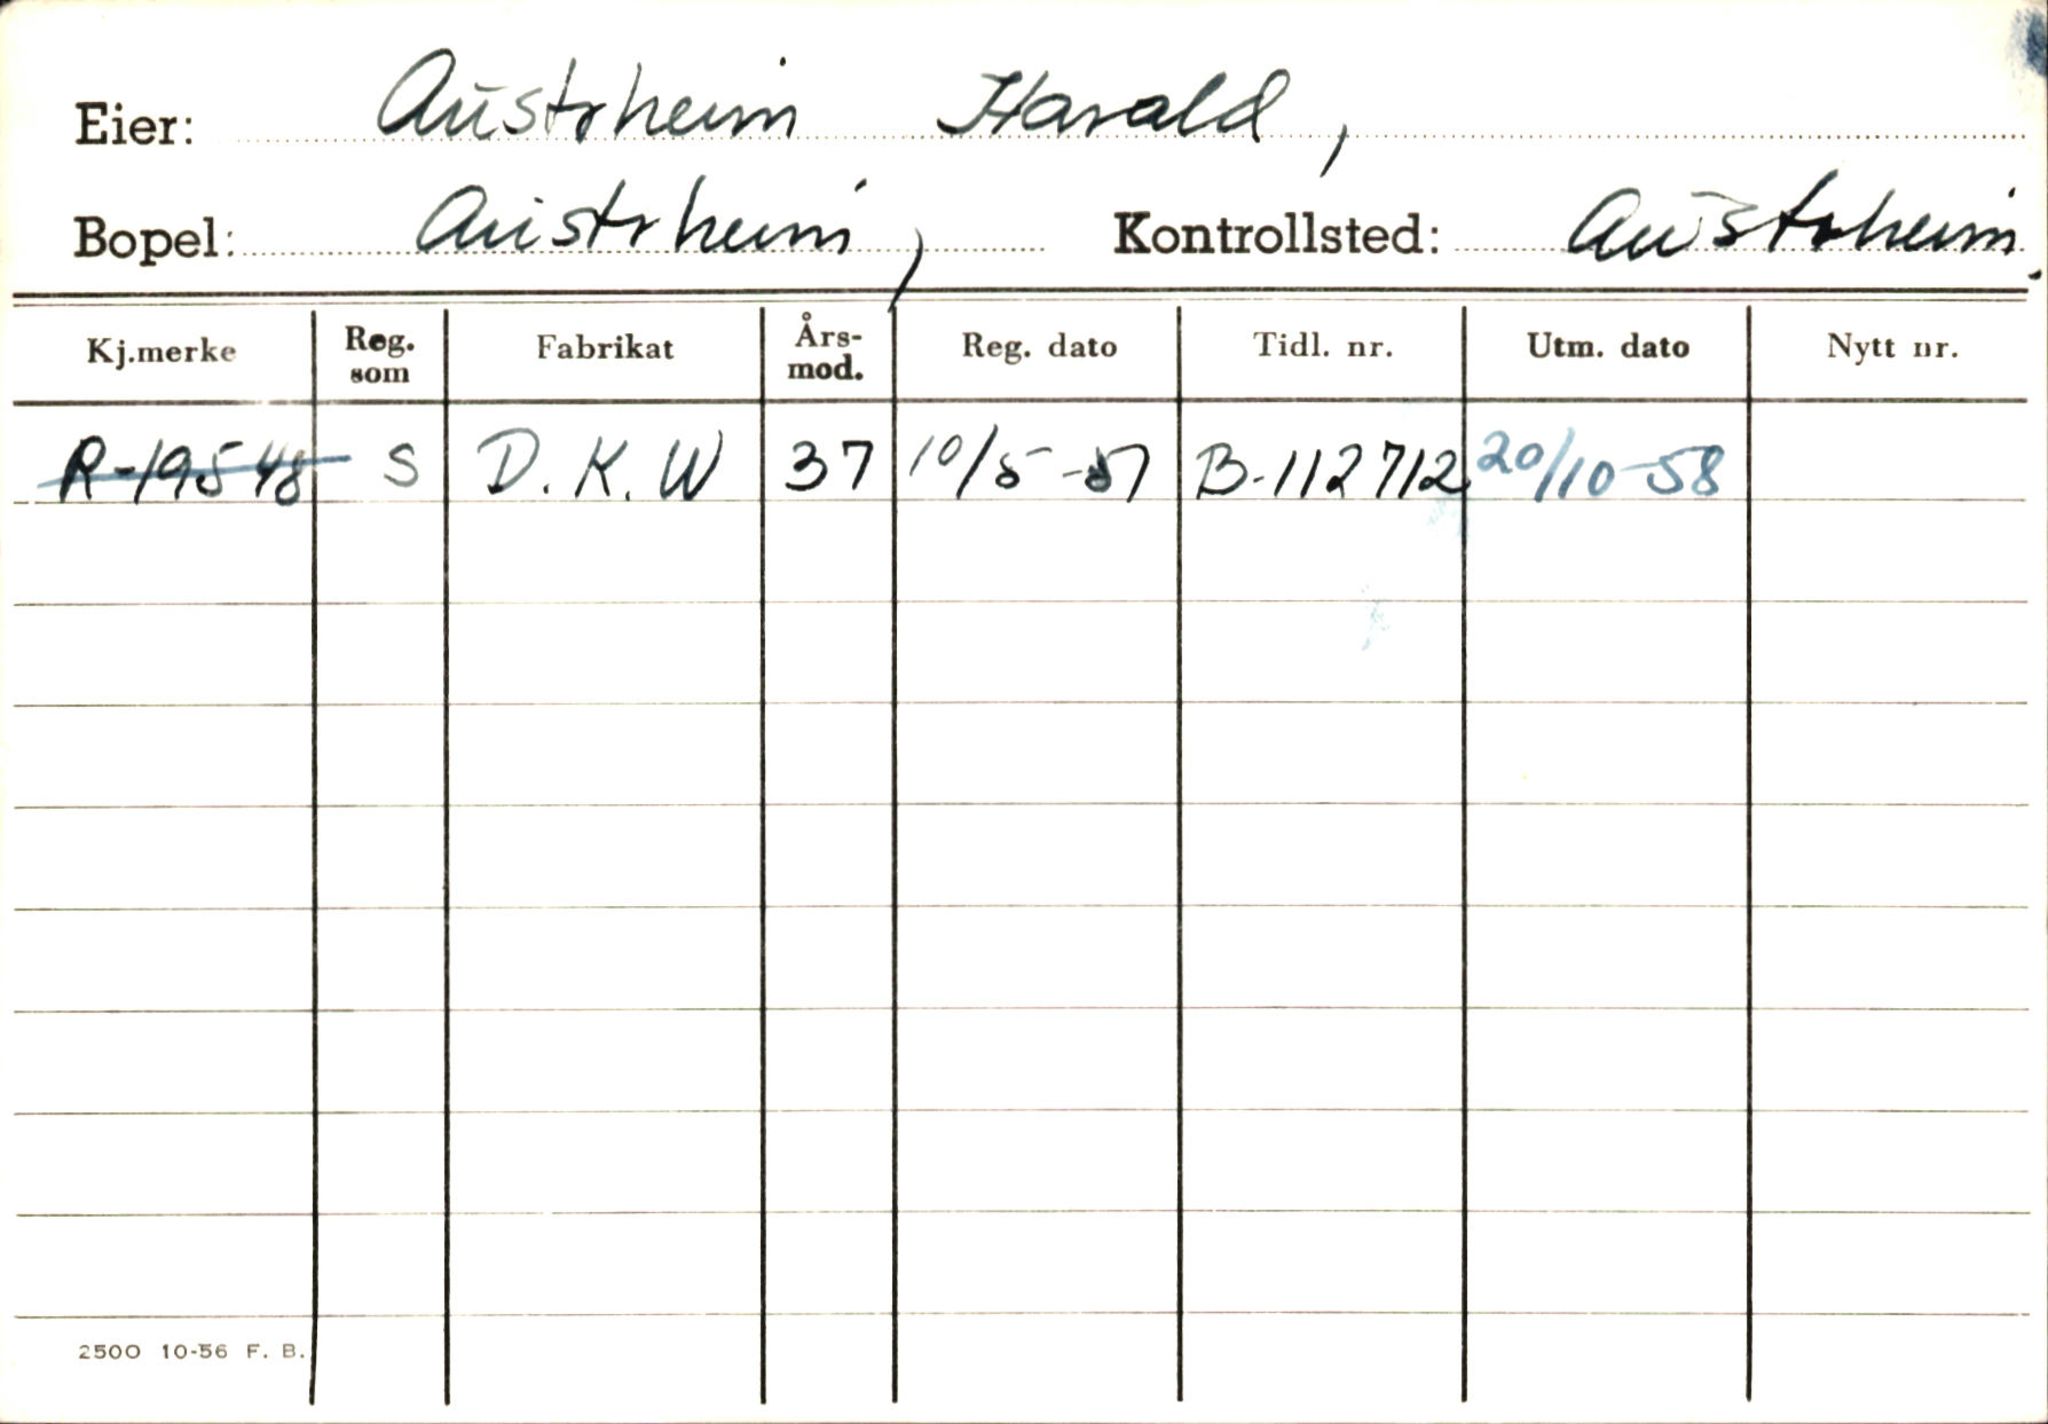 Eier: Austrheim Harald,
Bopel: Austrheim, Kontrollsted: Austrheim.
Kj.merke Reg. som Fabrikat Års-mod. Reg. dato Tidl. nr. Utm. dato Nytt nr.
R-19548 S D.K.W 37 10/5-57 B-112712 20/10-58
2500 10-56 F. B.